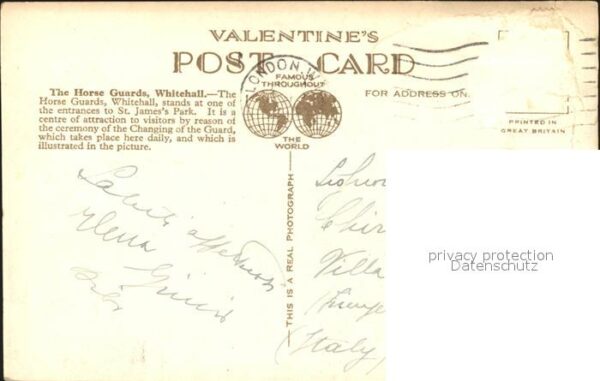 VALENTINE'S
POST CARD
LONDON
FAMOUS
THROUGHOUT
THE
WORLD
FOR ADDRESS ON
PRINTED IN
GREAT BRITAIN
The Horse Guards, Whitehall.—The
Horse Guards, Whitehall, stands at one of
the entrances to St. James's Park. It is a
centre of attraction to visitors by reason of
the ceremony of the Changing of the Guard,
which takes place here daily, and which is
illustrated in the picture.
THIS IS A REAL PHOTOGRAPH
Saluti affettuosi
Elena
Villa
(Italy)
privacy protection
Datenschutz